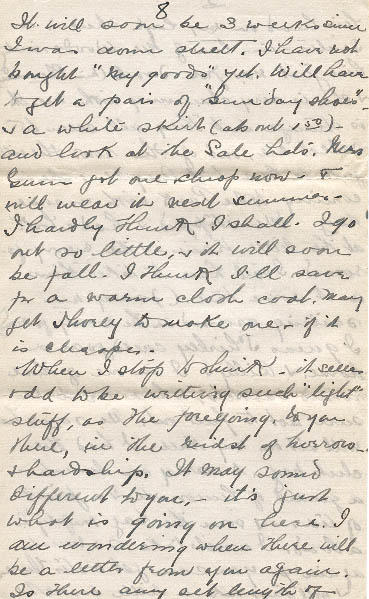 8
It will soon be 3 weeks since
I was down street. I have not
bought "my goods" yet. Will have
to get a pair of "Sunday shoes" -
& a white skirt (about 1.50) -
and look at the Sale hats. Mrs
Gunn got one cheap now - &
will wear it next summer -
I hardly think I shall. I go
out so little, & it will soon
be fall. I think I'll save
for a warm cloth coat. May
get to make one - if it
is cheaper.
When I stop to think - it seems
odd to be writing such "light"
stuff, as the foregoing, to you
there, in the midst of horrors -
& hardship. It may sound
different to you, - it's just
what is going on here. I
am wondering when there will
be a letter from you again.
Is there any set length of